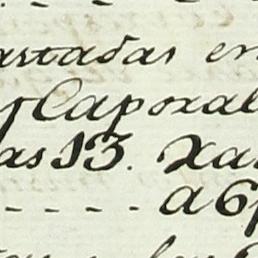 astadas en
y Caporal
as 13. Xa
- - - - - a 6